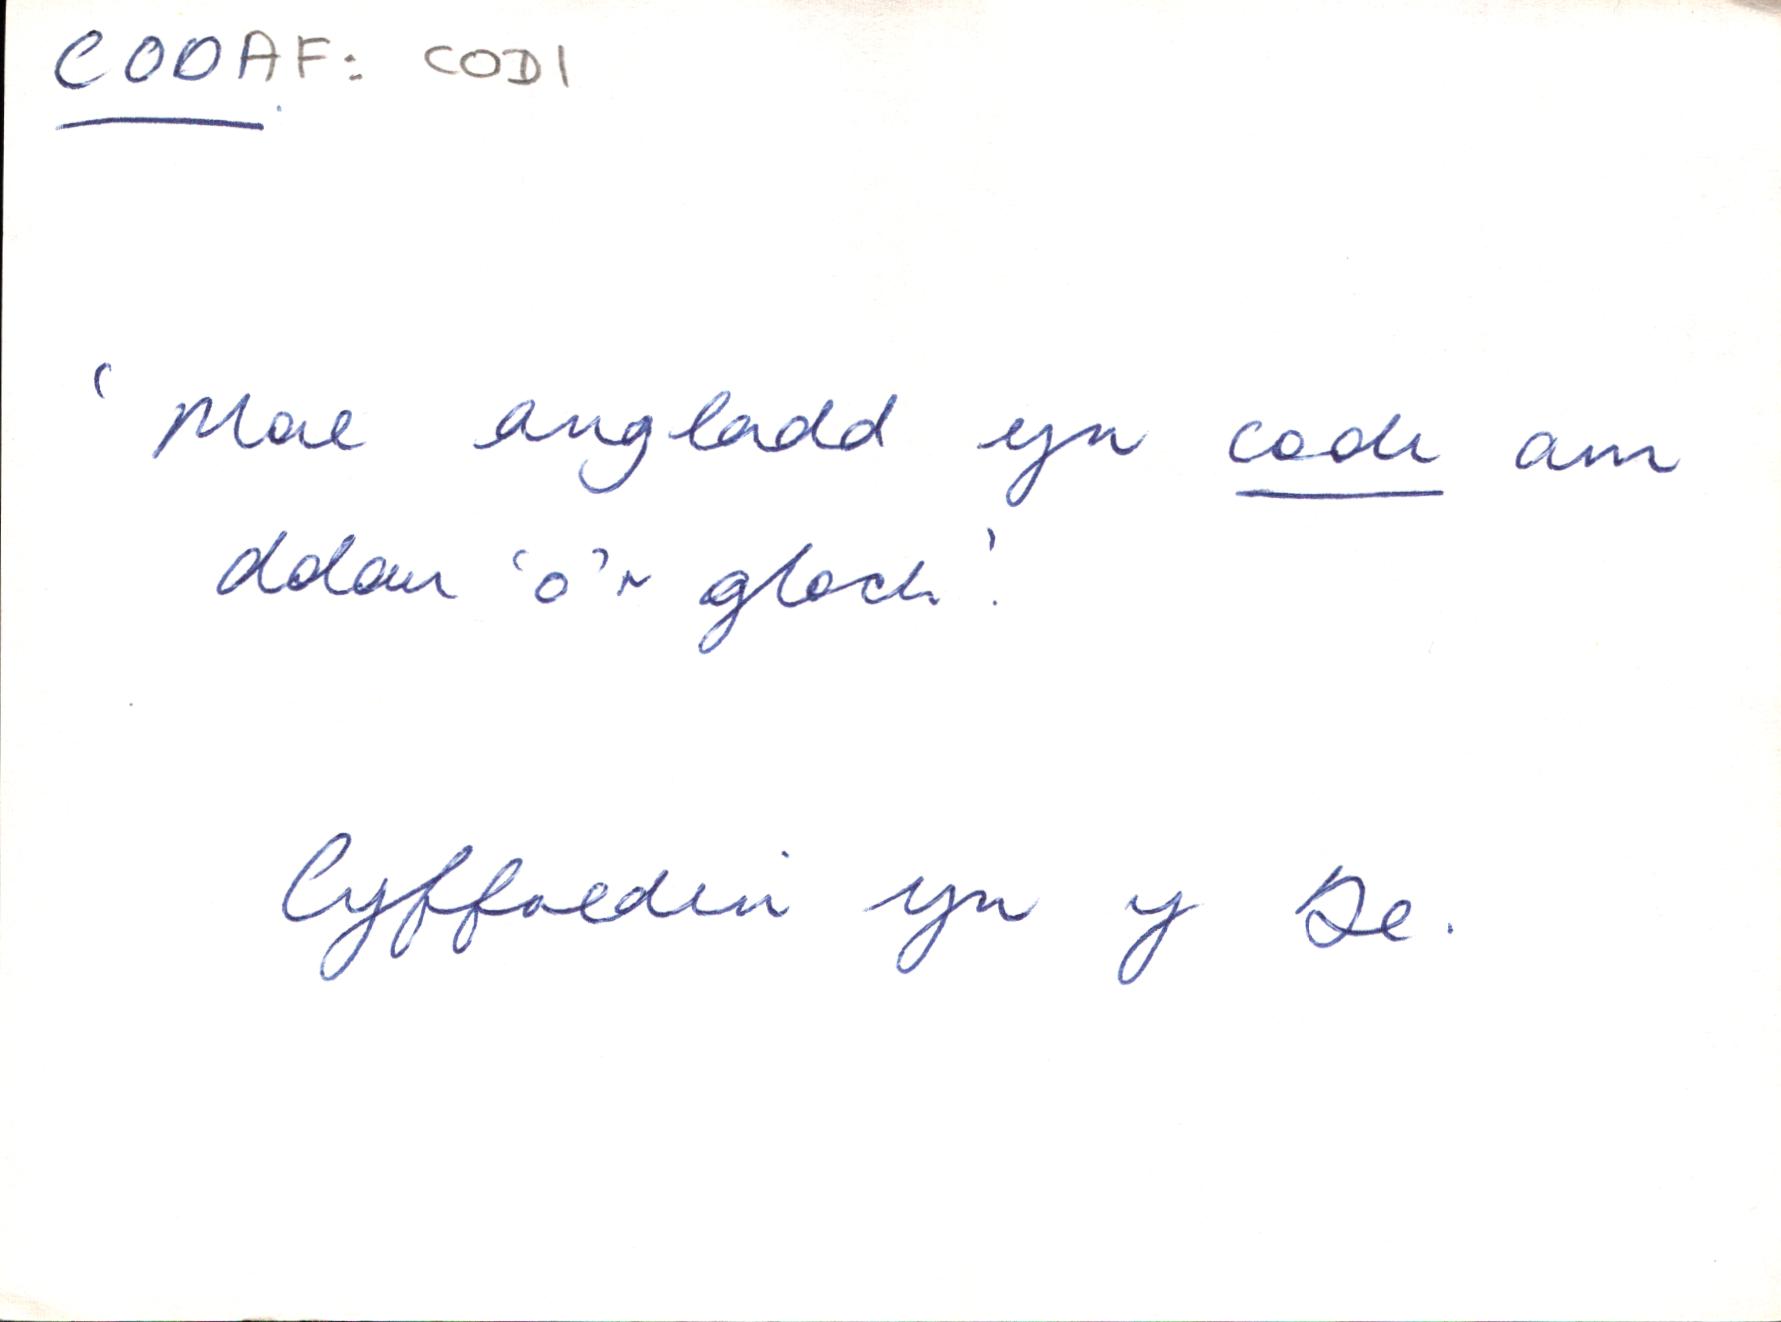 CODAF: CODI
'Mae angladd yn codi am
ddau 'o'r gloch'.
Cyffredin yn y De.